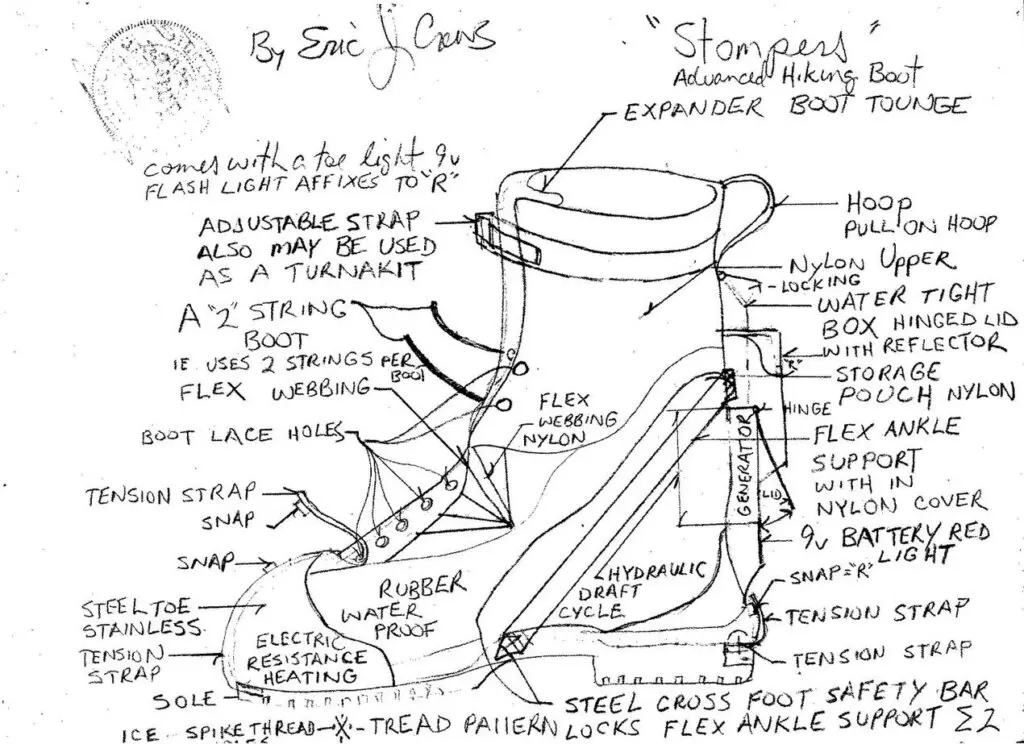 By Eric J Crews
"Stompers"
Advanced Hiking Boot
EXPANDER BOOT TOUNGE
comes with a toe light 9v
FLASH LIGHT AFFIXES TO "R"
ADJUSTABLE STRAP
ALSO MAY BE USED
AS A TURNAKIT
HOOP
PULL ON HOOP
NYLON UPPER
LOCKING
WATER TIGHT
BOX HINGED LID
WITH REFLECTOR
"R"
STORAGE
POUCH NYLON
A "2" STRING
BOOT
IE USES 2 STRINGS PER
BOOT
FLEX WEBBING
FLEX
WEBBING
NYLON
HINGE
GENERATOR
LID
FLEX ANKLE
SUPPORT
WITH IN
NYLON COVER
BOOT LACE HOLES
TENSION STRAP
SNAP
9v BATTERY RED
LIGHT
SNAP="R"
SNAP
HYDRAULIC
DRAFT
CYCLE
RUBBER
WATER
PROOF
TENSION STRAP
STEEL TOE
STAINLESS
TENSION
STRAP
ELECTRIC
RESISTANCE
HEATING
TENSION STRAP
SOLE
STEEL CROSS FOOT SAFETY BAR
LOCKS FLEX ANKLE SUPPORT Σ2
ICE SPIKE THREAD -X- TREAD PATTERN